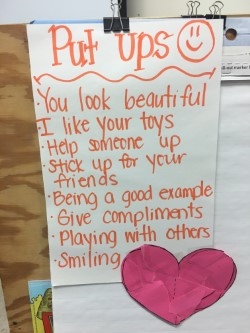 Put Ups
· You look beautiful
I like your toys
· Help someone up
· Stick up for your
friends
· Being a good example
· Give compliments
· Playing with others
· Smiling